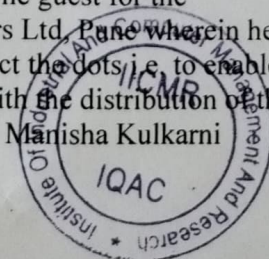 guest for the
ers Ltd, Pune wherein he
ct the dots i.e. to enable
with the distribution of th
Manisha Kulkarni
Institute Of Industrial And Computer Management And Research
IICMR
IQAC